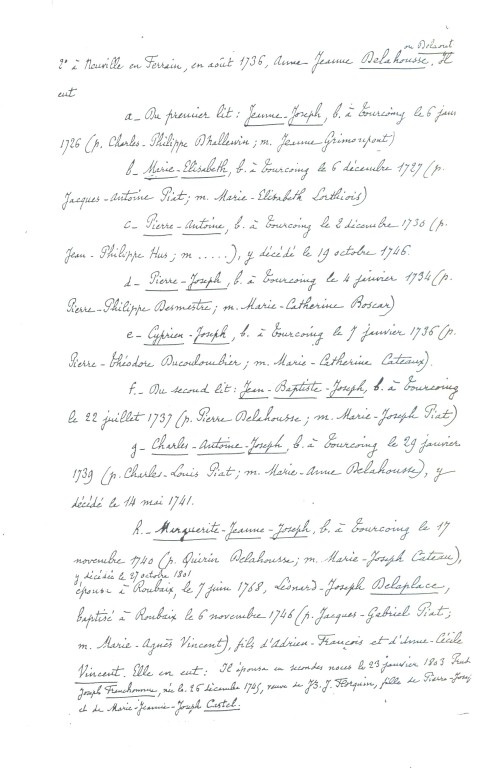 ou Delsout
2° à Neuville en Ferrain, en août 1736, Anne Jeanne Delahousse. Il
eut
a_ Du premier lit: Jeanne-Joseph, b. à Tourcoing le 6
1726 (p. Charles-Philippe D'halleuin; m. Jeanne Grimonpont)
b_ Marie-Elisabeth, b. à Tourcoing le 6 décembre 1727 (p.
Jacques-Antoine Piat; m. Marie-Elisabeth Lorthiois)
c_ Pierre-Antoine, b. à Tourcoing le 2 décembre 1730 (p.
Jean-Philippe Hus; m .....), y décédé le 19 octobre 1746.
d_ Pierre-Joseph, b. à Tourcoing le 4 janvier 1734 (p.
Pierre-Philippe Desmestre; m. Marie-Catherine Boscar)
e_ Cyprien-Joseph, b. à Tourcoing le 7 janvier 1736 (p.
Pierre-Théodore Ducoulombier; m. Marie-Catherine Cateaux).
f_ Du second lit: Jean-Baptiste-Joseph, b. à Tourcoing
le 22 juillet 1737 (p. Pierre Delahousse; m. Marie-Joseph Piat)
g_ Charles-Antoine-Joseph, b. à Tourcoing le 29 janvier
1739 (p. Charles-Louis Piat; m. Marie-Anne Delahousse), y
décédé le 14 mai 1741.
h_ Marguerite-Jeanne-Joseph, b. à Tourcoing le 17
novembre 1740 (p. Quirin Delahousse; m. Marie-Joseph Cateau),
y décédée le 27 octobre 1801
épouse à Roubaix, le 7 juin 1768, Léonard-Joseph Delaplace,
baptisé à Roubaix le 6 novembre 1746 (p. Jacques-Gabriel Piat;
m. Marie-Agnès Vincent), fils d'Adrien-François et d'Anne-Cécile
Vincent. Elle en eut: Il épousa en secondes noces le 23 janvier 1803
Joseph Franchomme, née le 26 décembre 1745, veuve de J.B. J. Florquin, fille de Pierre-Josep
et de Marie-Jeanne-Joseph Castel.